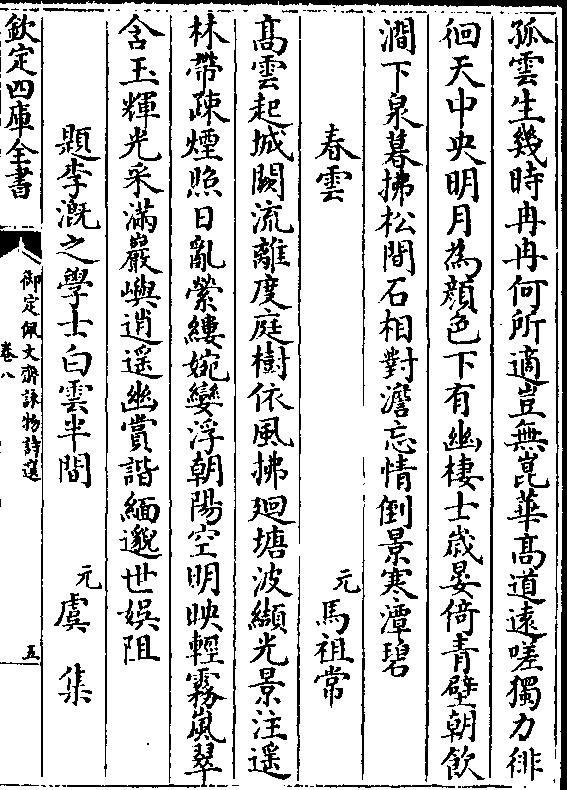 孤雲生幾時冉冉何所適豈無崑華髙道遠嗟獨力徘
徊天中央明月為顔色下有幽棲士歳晏倚青壁朝飲
澗下泉暮拂松間石相對澹忘情倒景寒潭碧
春雲　元馬祖常
髙雲起城闕流離度庭樹依風拂廻塘波纈光景注遥
林帶疎煙照日亂縈縷婉孌浮朝陽空明映輕霧嵐翠
含玉輝光采滿巖嶼逍遥幽賞諧緬邈世娯阻
題李溉之學士白雲半間　元虞集
欽定四庫全書
御定佩文齋詠物詩選
卷八
五